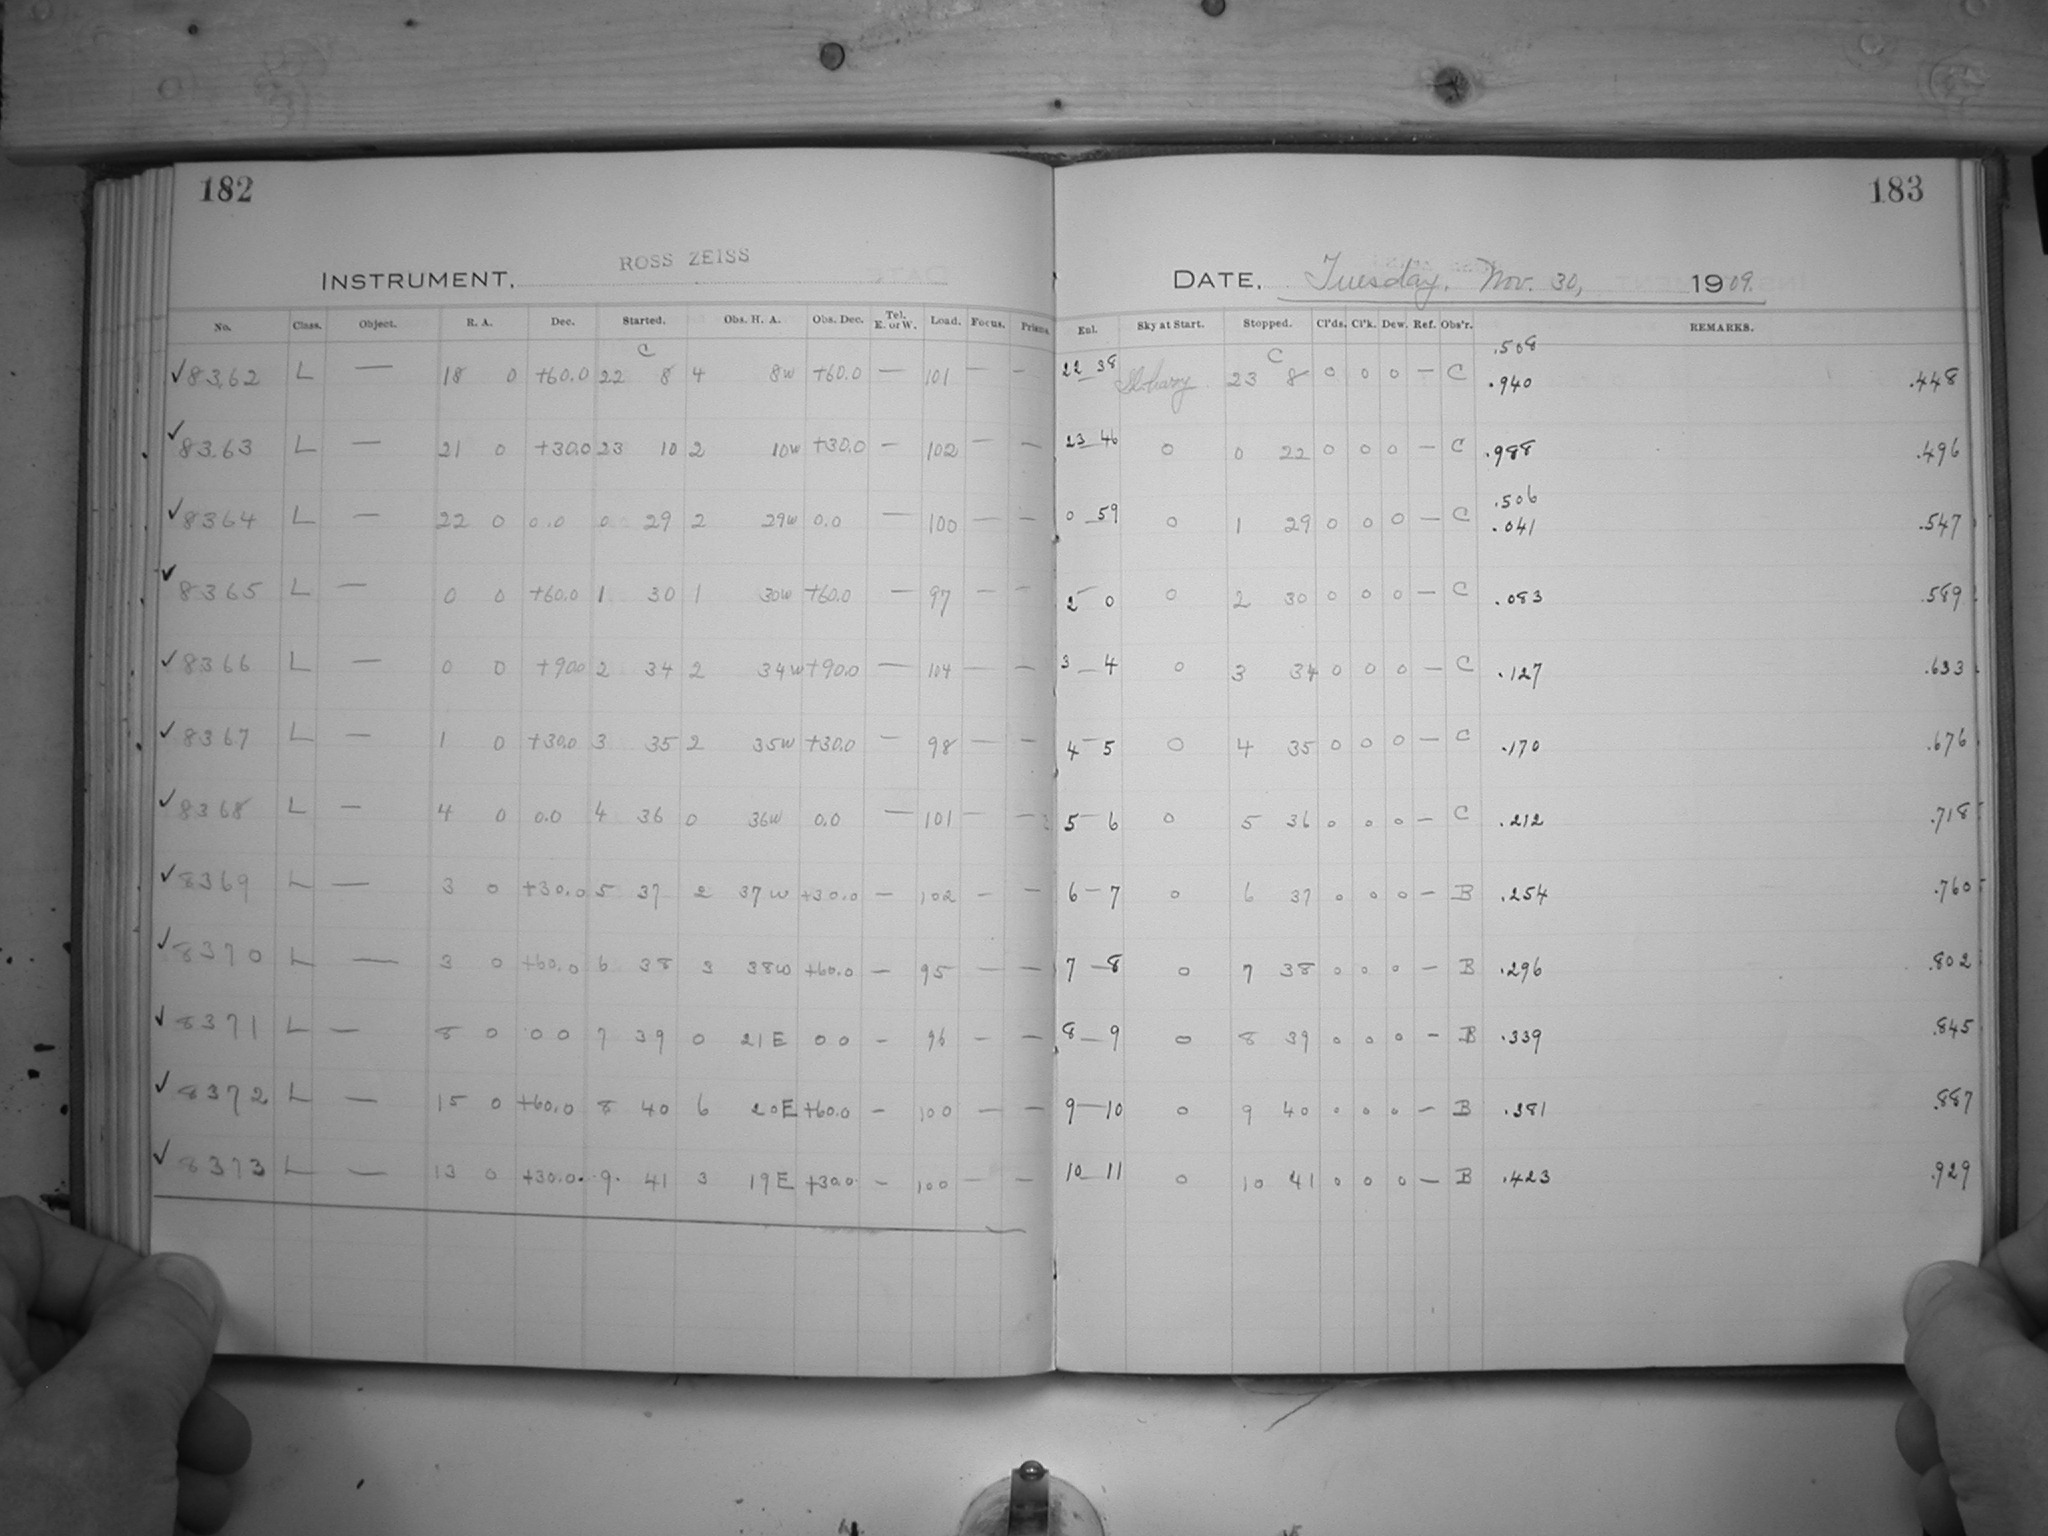 182
183
INSTRUMENT, ROSS ZEISS
DATE, Tuesday, Nov. 30, 1909.
No. Class. Object. R. A. Dec. Started. Obs. H. A. Obs. Dec. Tel. E. or W. Load. Focus. Prisms. Exl. Sky at Start. Stopped. Cl'ds. Cl'k. Dew. Ref. Obs'r. REMARKS.
C C .508
✓8362 L — 18 0 +60.0 22 8 4 8w +60.0 — 101 — — 22 38 Sl. hazy 23 8 0 0 0 — C .940 .448
✓8363 L — 21 0 +30.0 23 10 2 10w +30.0 — 102 — — 23 46 0 0 22 0 0 0 — C .988 .496
.506
✓8364 L — 22 0 0.0 0 29 2 29w 0.0 — 100 — — 0 59 0 1 29 0 0 0 — C .041 .547
✓8365 L — 0 0 +60.0 1 30 1 30w +60.0 — 97 — — 2 0 0 2 30 0 0 0 — C .083 .589
✓8366 L — 0 0 +90.0 2 34 2 34w +90.0 — 104 — — 3 4 0 3 34 0 0 0 — C .127 .633
✓8367 L — 1 0 +30.0 3 35 2 35w +30.0 — 98 — — 4 5 0 4 35 0 0 0 — C .170 .676
✓8368 L — 4 0 0.0 4 36 0 36w 0.0 — 101 — — 5 6 0 5 36 0 0 0 — C .212 .718
✓8369 L — 3 0 +30.0 5 37 2 37w +30.0 — 102 — — 6 7 0 6 37 0 0 0 — B .254 .760
✓8370 L — 3 0 +60.0 6 38 3 38w +60.0 — 95 — — 7 8 0 7 38 0 0 0 — B .296 .802
✓8371 L — 8 0 0 0 7 39 0 21E 0 0 — 96 — — 8 9 0 8 39 0 0 0 — B .339 .845
✓8372 L — 15 0 +60.0 8 40 6 20E +60.0 — 100 — — 9 10 0 9 40 0 0 0 — B .381 .887
✓8373 L — 13 0 +30.0 9 41 3 19E +30.0 — 100 — — 10 11 0 10 41 0 0 0 — B .423 .929